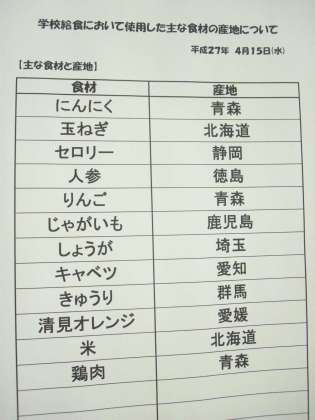 学校給食において使用した主な食材の産地について
平成27年 4月15日(水)
【主な食材と産地】
食材 産地
にんにく 青森
玉ねぎ 北海道
セロリー 静岡
人参 徳島
りんご 青森
じゃがいも 鹿児島
しょうが 埼玉
キャベツ 愛知
きゅうり 群馬
清見オレンジ 愛媛
米 北海道
鶏肉 青森